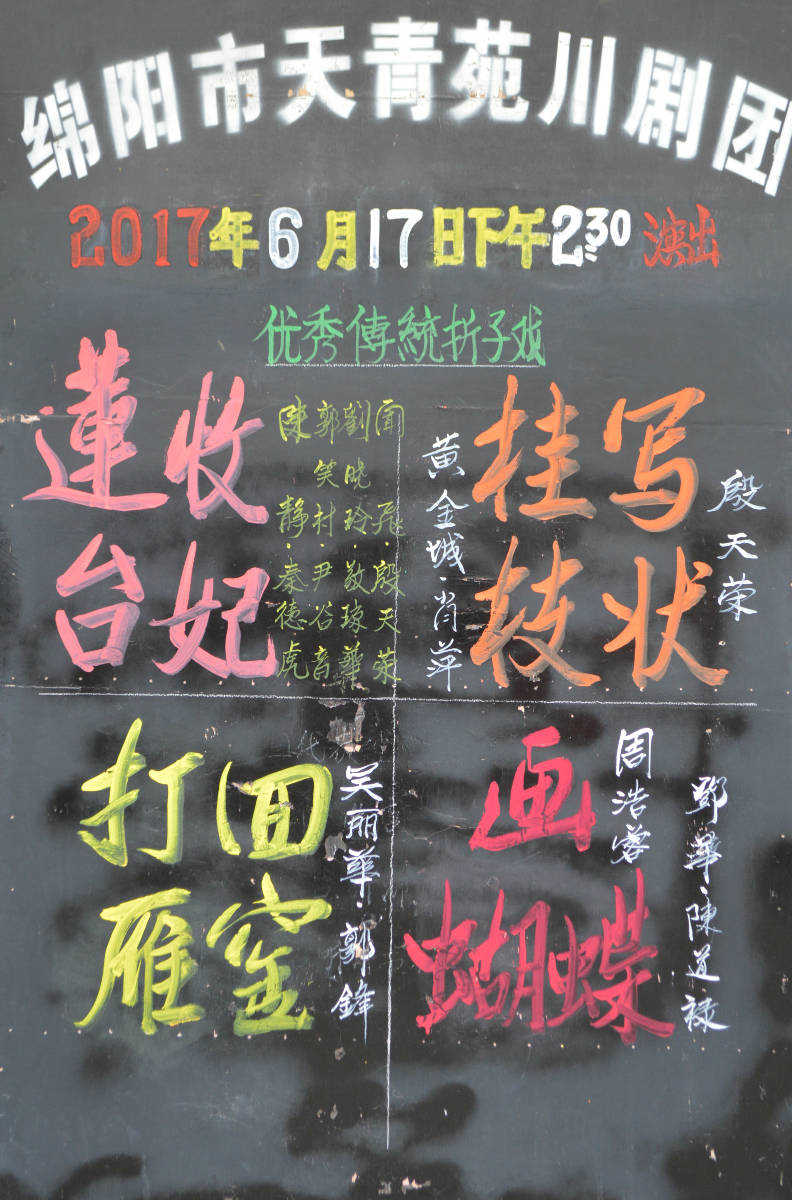 绵阳市天青苑川剧团
2017年6月17日下午2:30演出
优秀傳統折子戏
蓮台
收妃
陳静·秦德虎
郭笑村·尹谷音
劉晓玲·敬琼華
聞飛·殷天荣
黄金城·肖萍
桂枝
写状
殷天荣
打雁
回窑
吴丽華·郭鋒
画
蝴蝶
周浩蓉
鄧華·陳道禄